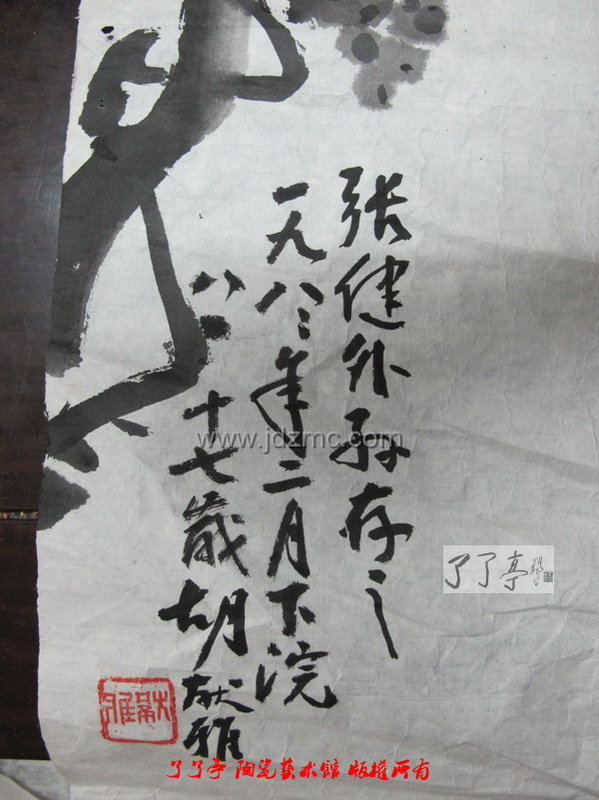 张健外孙存之
一九八〻年二月下浣
八十七歲胡献雅
www.jdzmc.com
了了亭
了了亭 陶瓷藝术館 版權所有